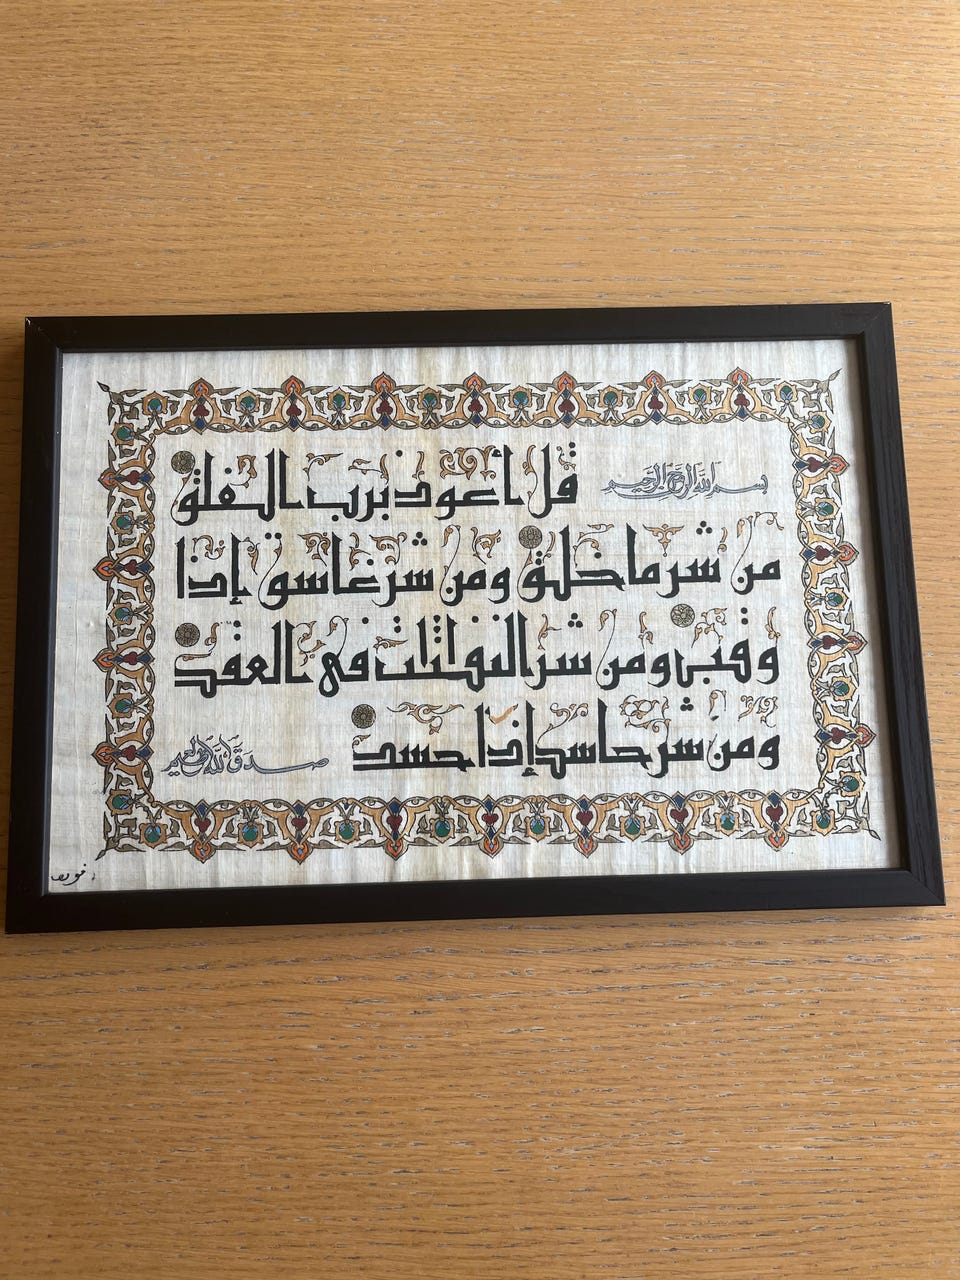 بسم الله الرحمن الرحيم
قل أعوذ برب الفلق
من شر ما خلق ومن شر غاسق إذا
وقب ومن شر النفاثات في العقد
ومن شر حاسد إذا حسد
صدق الله العظيم